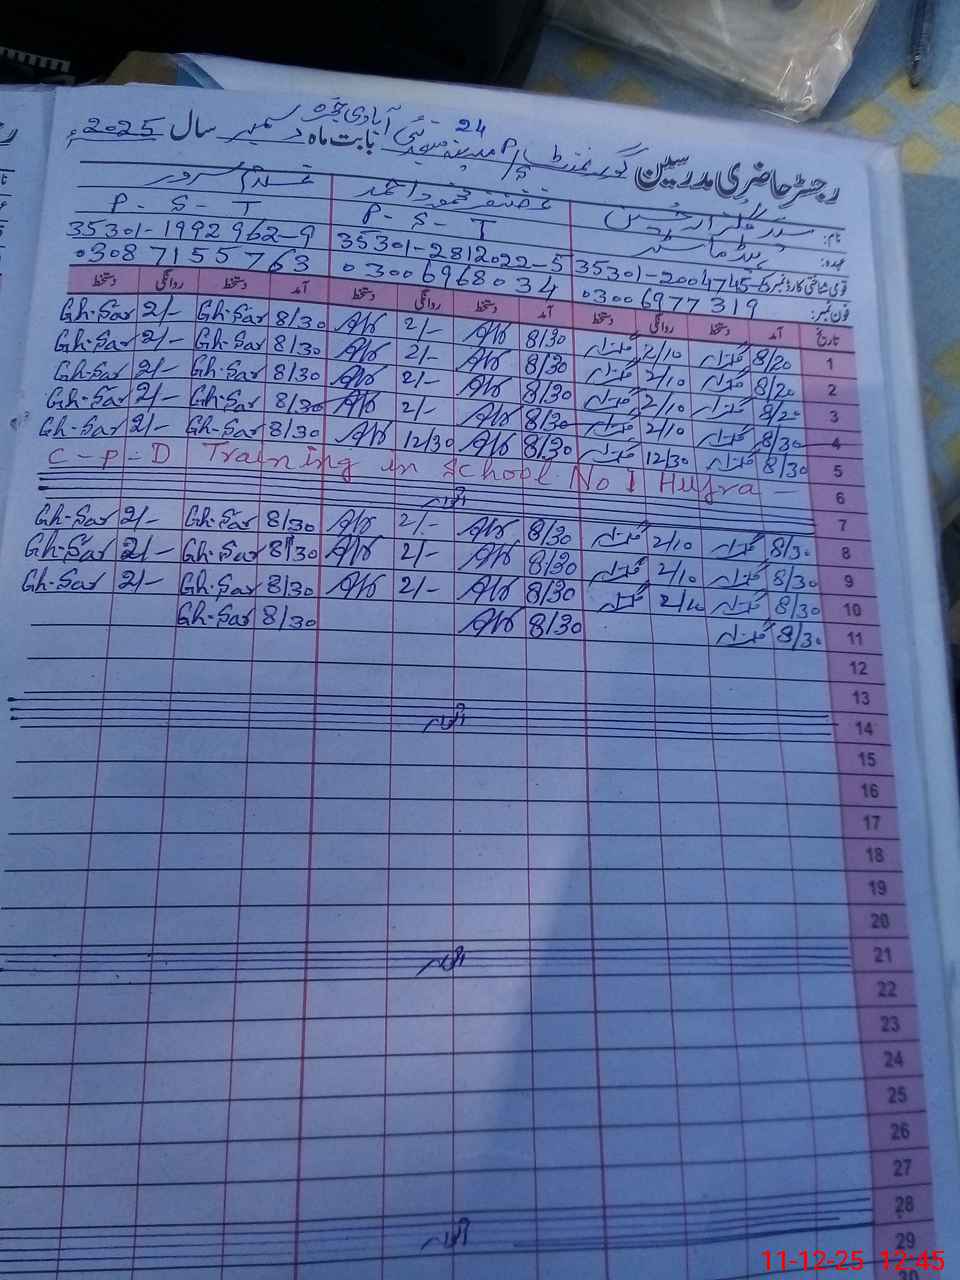 رجسٹر حاضری مدرسین گورنمنٹ P/S مدینہ مسجد نئی آبادی 24 بابت ماہ دسمبر سال 2025ء
نام: غضنفر محمود احمد غلام سرور
عہدہ: ہیڈ ماسٹر P-S-T P-S-T
قومی شناختی کارڈ نمبر 35301-2004745-5 35301-2812022-5 35301-1992962-9
فون نمبر: 03006977319 03006968034 03087155763
تاریخ آمد دستخط روانگی دستخط آمد دستخط روانگی دستخط آمد دستخط روانگی دستخط
1 8/20 2/10 8/30 2/- 8/30 Gh-Sar 2/- Gh-Sar
2 8/20 2/10 8/30 2/- 8/30 Gh-Sar 2/- Gh-Sar
3 8/20 2/10 8/30 2/- 8/30 Gh-Sar 2/- Gh-Sar
4 8/30 2/10 8/30 2/- 8/30 Gh-Sar 2/- Gh-Sar
5 8/30 12/30 8/30 12/30 8/30 Gh-Sar 2/- Gh-Sar
6 C-P-D Training in School No 1 Hujra
7 اتوار
8 8/30 2/10 8/30 2/- 8/30 Gh-Sar 2/- Gh-Sar
9 8/30 2/10 8/30 2/- 8/30 Gh-Sar 2/- Gh-Sar
10 8/30 2/10 8/30 2/- 8/30 Gh-Sar 2/- Gh-Sar
11 8/30 8/30 8/30 Gh-Sar
12
13
14 اتوار
15
16
17
18
19
20
21 اتوار
22
23
24
25
26
27
28 اتوار
29
11-12-25 12:45